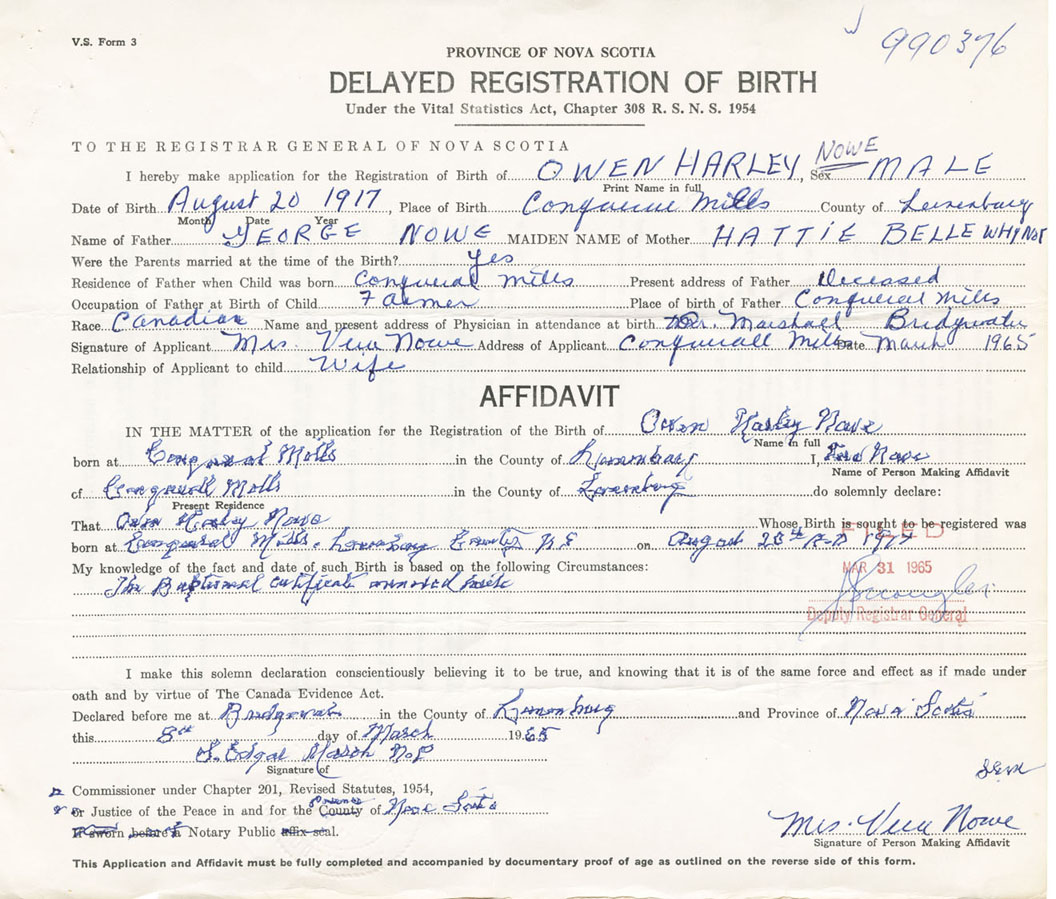 V.S. Form 3
990376
PROVINCE OF NOVA SCOTIA
DELAYED REGISTRATION OF BIRTH
Under the Vital Statistics Act, Chapter 308 R. S. N. S. 1954
TO THE REGISTRAR GENERAL OF NOVA SCOTIA
NOWE
I hereby make application for the Registration of Birth of OWEN HARLEY, Sex MALE
Print Name in full
Date of Birth August 20 1917, Place of Birth Mills County of
Month Date Year
Name of Father GEORGE NOWE MAIDEN NAME of Mother HATTIE BELLE WHYNOT
Were the Parents married at the time of the Birth? Yes
Residence of Father when Child was born Conquerall Mills Present address of Father Deceased
Occupation of Father at Birth of Child Farmer Place of birth of Father Conquerall Mills
Race Canadian Name and present address of Physician in attendance at birth Dr. Marshall Bridgwater
Signature of Applicant Mrs. Vera Nowe Address of Applicant Conquerall Mills Date March 1965
Relationship of Applicant to child Wife
AFFIDAVIT
IN THE MATTER of the application for the Registration of the Birth of Owen Harley Nowe
Name in full
born at in the County of Lunenburg I, Nowe
Name of Person Making Affidavit
of in the County of Lunenburg do solemnly declare:
Present Residence
That Owen Harley Nowe Whose Birth is sought to be registered was
born at Mills, Lunenburg County N S on August 20th A.D 1917
FILED
My knowledge of the fact and date of such Birth is based on the following Circumstances:
MAR 31 1965
The Baptismal certificate annexed
Deputy Registrar General
I make this solemn declaration conscientiously believing it to be true, and knowing that it is of the same force and effect as if made under
oath and by virtue of The Canada Evidence Act.
Declared before me at Bridgewater in the County of Lunenburg and Province of Nova Scotia
this 8th day of March 1965
S. Edgar March N.P
Signature of
Commissioner under Chapter 201, Revised Statutes, 1954,
or Justice of the Peace in and for the County of Nova Scotia
If sworn before a Notary Public affix seal.
Mrs. Vera Nowe
Signature of Person Making Affidavit
This Application and Affidavit must be fully completed and accompanied by documentary proof of age as outlined on the reverse side of this form.